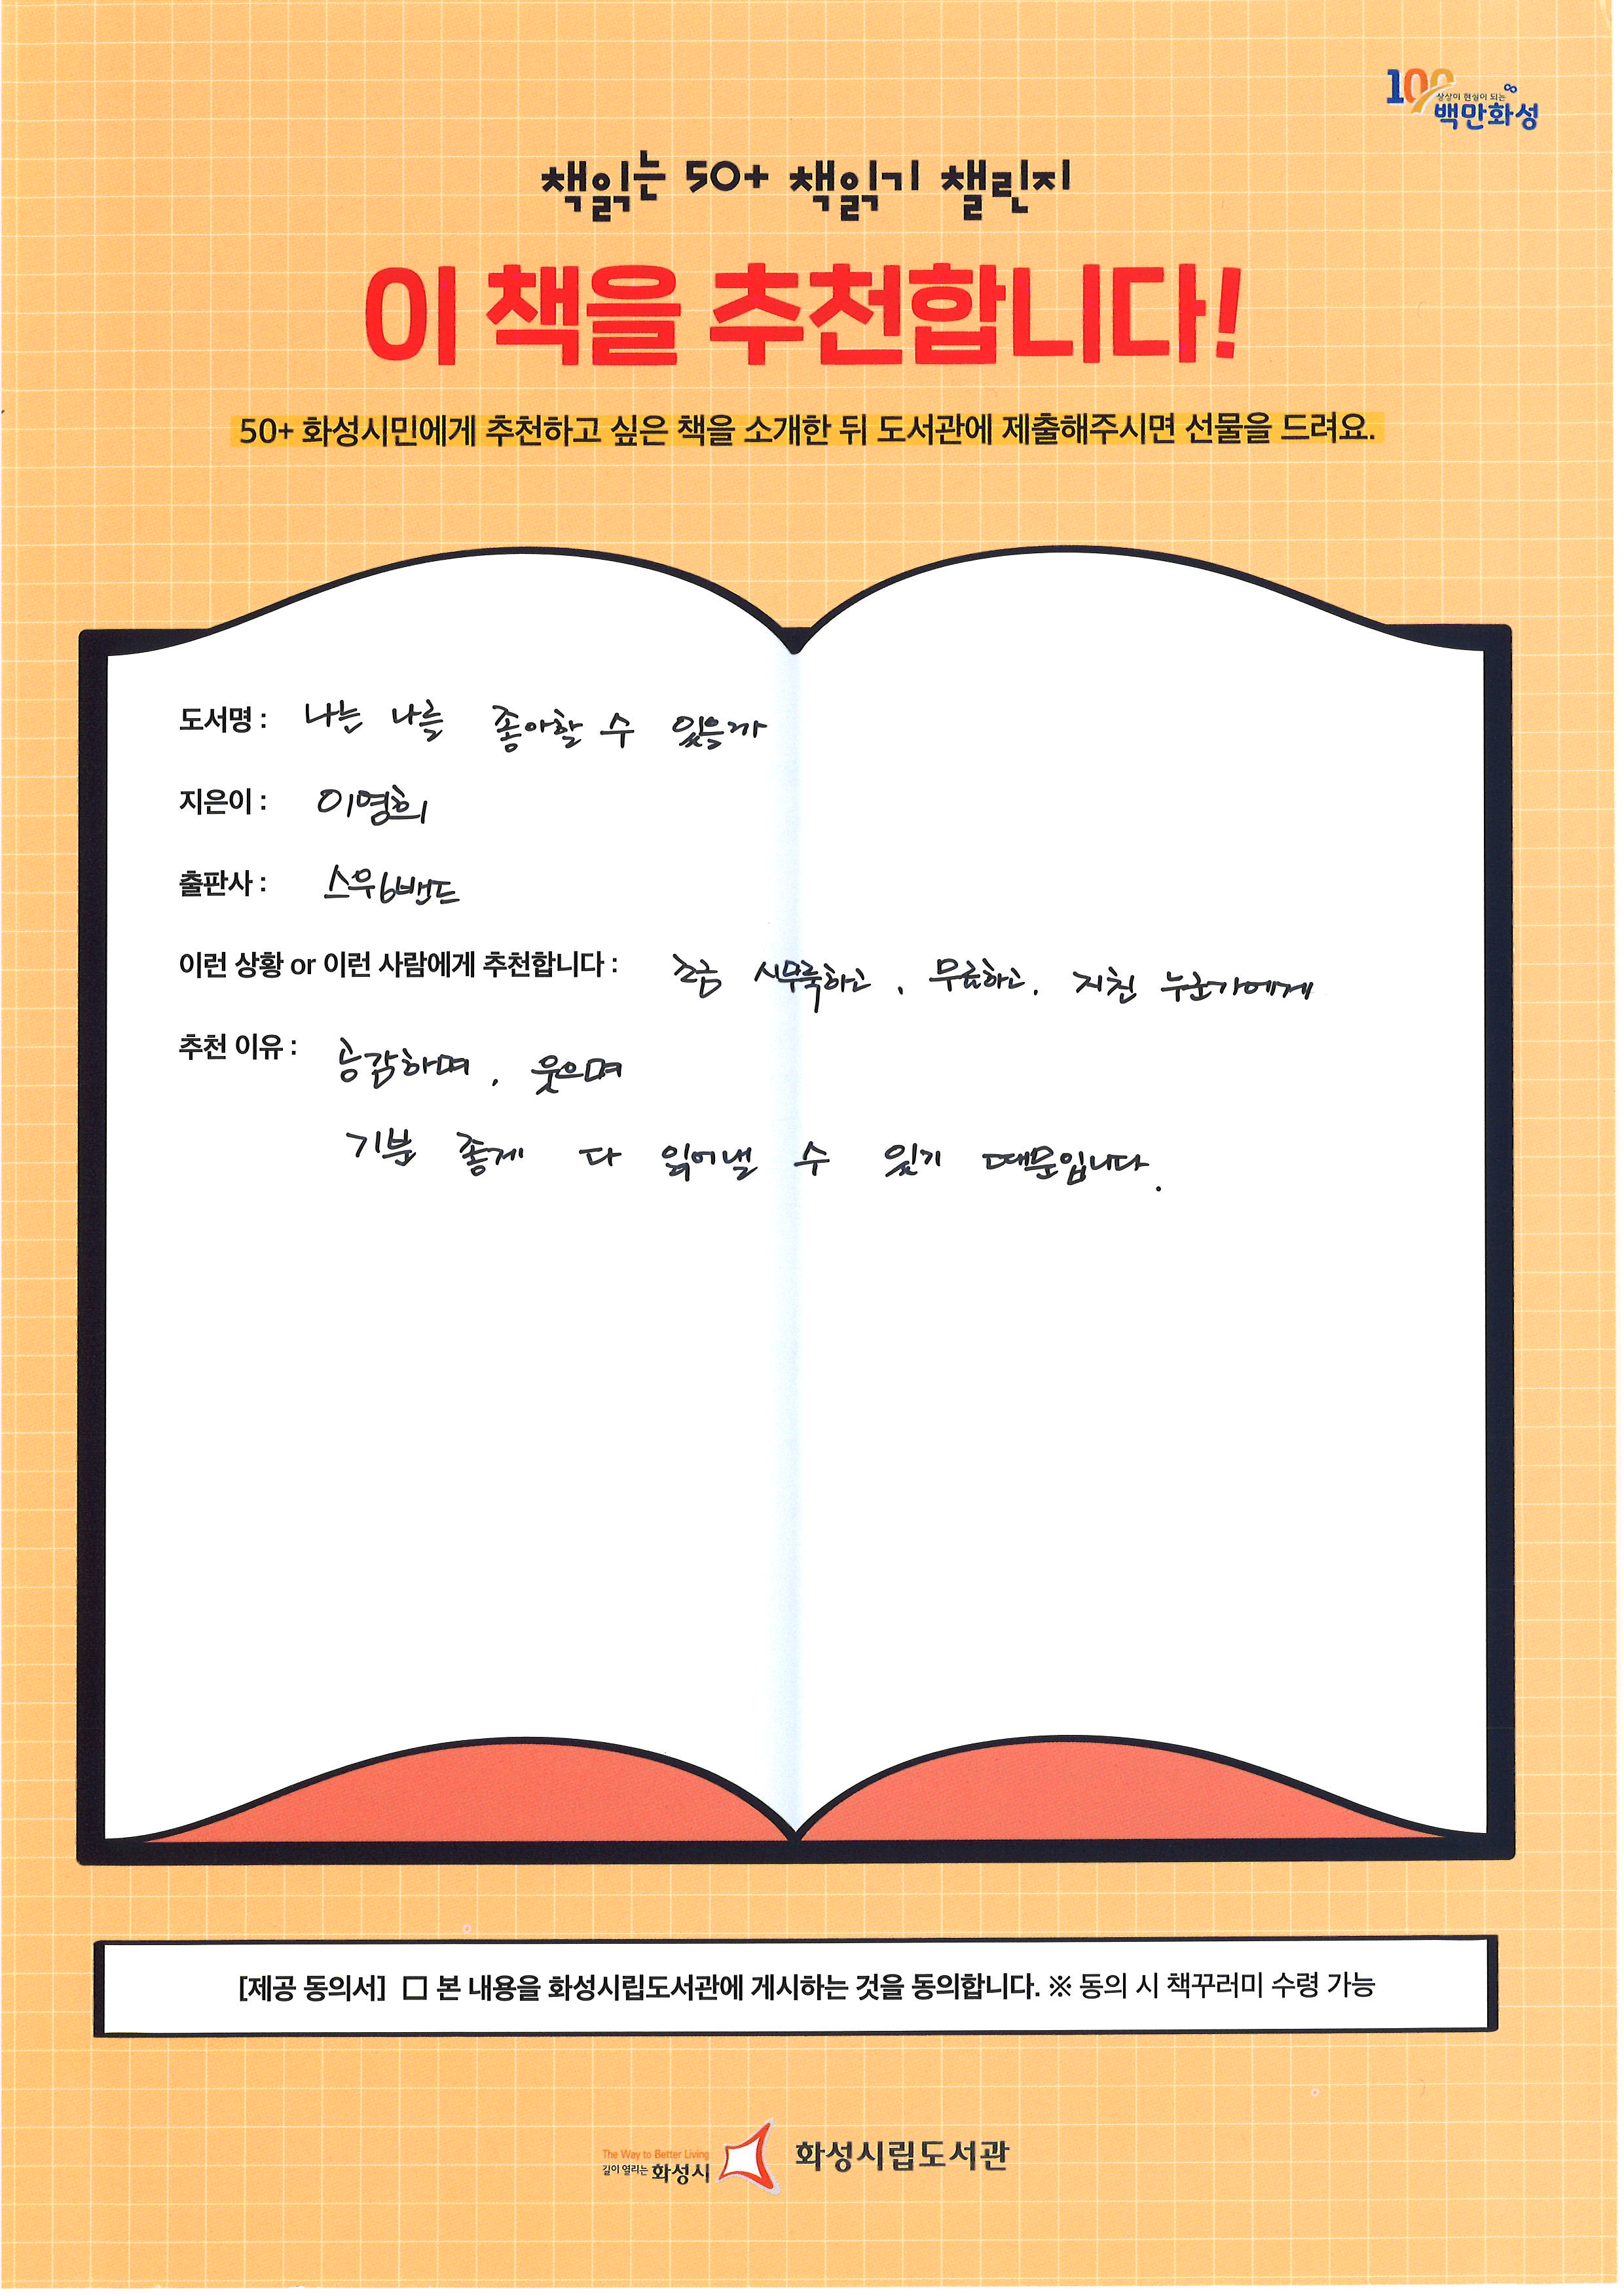 100
상상이 현실이 되는
백만화성
책읽는 50+ 책읽기 챌린지
이 책을 추천합니다!
50+ 화성시민에게 추천하고 싶은 책을 소개한 뒤 도서관에 제출해주시면 선물을 드려요.
도서명 : 나는 나를 좋아할 수 있을까
지은이 : 이영희
출판사 : 스위밍밴드
이런 상황 or 이런 사람에게 추천합니다 : 조금 시무룩하고, 무료하고, 지친 누군가에게
추천 이유 : 공감하며, 웃으며
기분 좋게 다 읽어낼 수 있기 때문입니다.
[제공 동의서] □ 본 내용을 화성시립도서관에 게시하는 것을 동의합니다. ※ 동의 시 책꾸러미 수령 가능
The Way to Better Living
길이 열리는 화성시
화성시립도서관